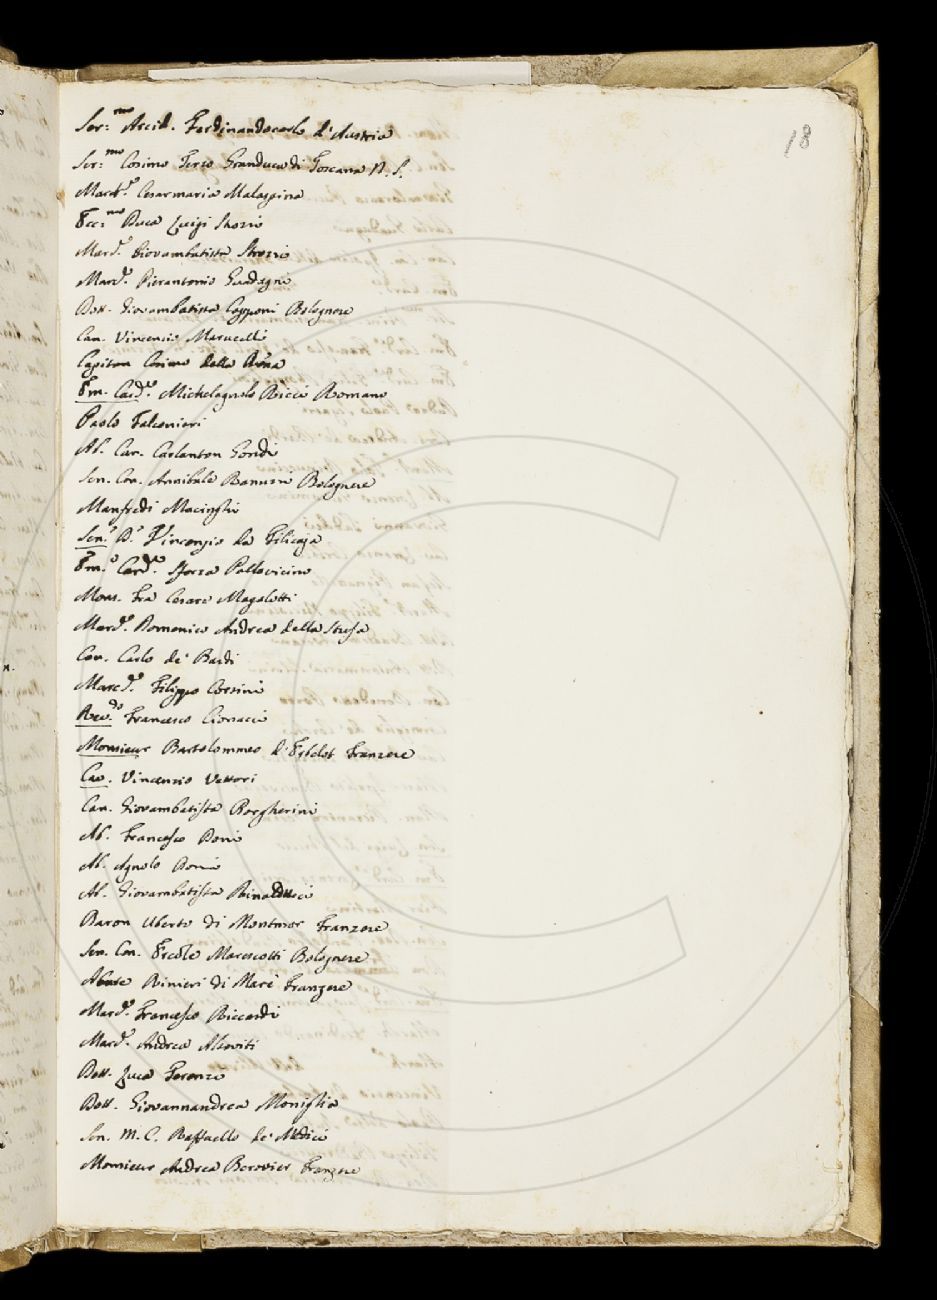 18
Ser:mo Arcid. Ferdinandocarlo d'Austria
Ser:mo Cosimo Terzo Granduca di Toscana N. S.
March.e Cesarmaria Malaspina
Ecc:mo Duca Luigi Strozzi
March.e Giovambatista Strozzi
March.e Pierantonio Guadagni
Dott. Giovambatista Capponi Bolognese
Can. Vincenzio Marucelli
Capitan Cosimo della Rena
Em. Card.e Michelagnolo Ricci Romano
Paolo Falconieri
Ab. Cav. Carlanton Gondi
Sen. Con. Annibale Ranuzzi Bolognese
Manfredi Macinghi
Sen.e D.e Vincenzio da Filicaja
Em.o Card.e Sforza Pallavicino
Mons. Fra Cesare Magalotti
March.e Domenico Andrea della Stufa
Con. Carlo de' Bardi
March.e Filippo Corsini
Rev.do Francesco Cionacci
Monsieur Bartolommeo d'Erbelot Franzese
Cav. Vincenzio Vettori
Can. Giovambatista Borgherini
Ab. Francesco Doni
Ab. Agnolo Doni
Ab. Giovambatista Rinalducci
Baron Uberto di Montmor Franzese
Sen. Con. Ercole Marescotti Bolognese
Abate Rinieri di Marè Franzese
March.e Francesco Riccardi
March.e Andrea Alcoviti
Dott. Luca Terenzi
Dott. Giovannandrea Moniglia
Sen. M. C. Raffaello de' Medici
Monsieur Andrea Berovier Franzese